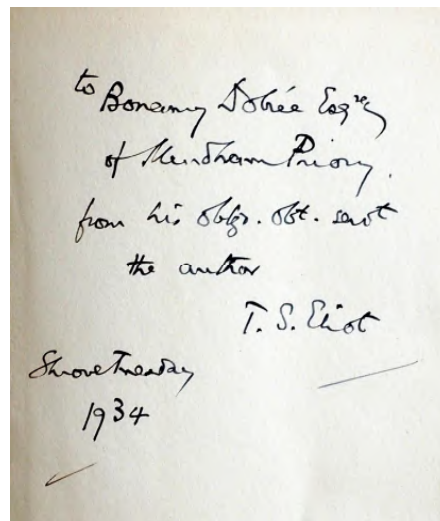 to Bonamy Dobrée Esqre
of Mendham Priory.
from his oblgd. obt. servt
the author
T. S. Eliot
Shrove Tuesday
1934